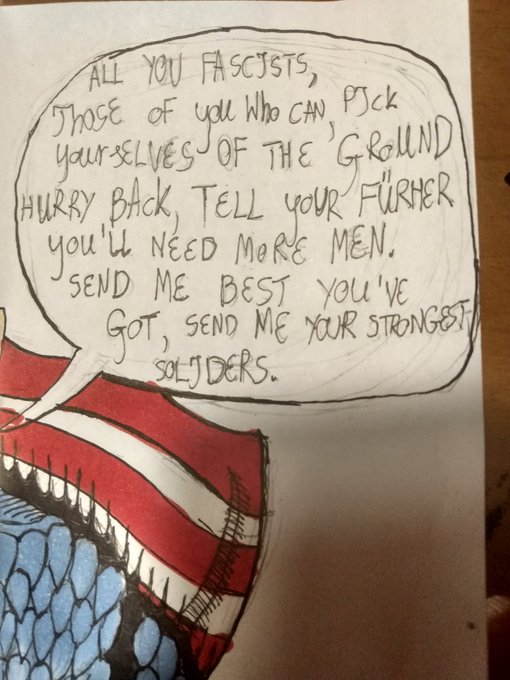 ALL YOU FASCISTS,
THOSE OF you Who CAN, PIck
your-SELVES OF THE GROUND
HURRY BAck, TELL yOUR FÜRHER
you'll NEED MORE MEN.
SEND ME BEST YOU'VE
GOT, SEND ME YOUR STRONGEST
SOLJDERS.